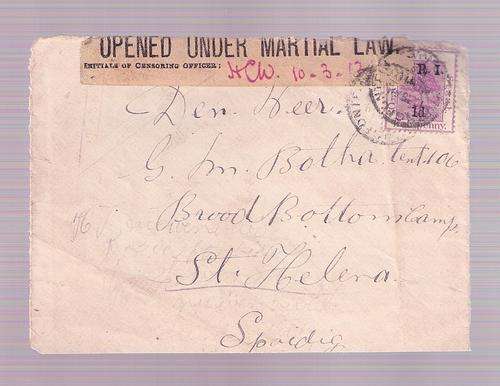 OPENED UNDER MARTIAL LAW
INITIALS OF CENSORING OFFICER:
HCW. 10-3-
Den Heer
G. M. Botha tent 106
Brood Bottom Camp.
St. Helena
Spoidig
R I.
1d